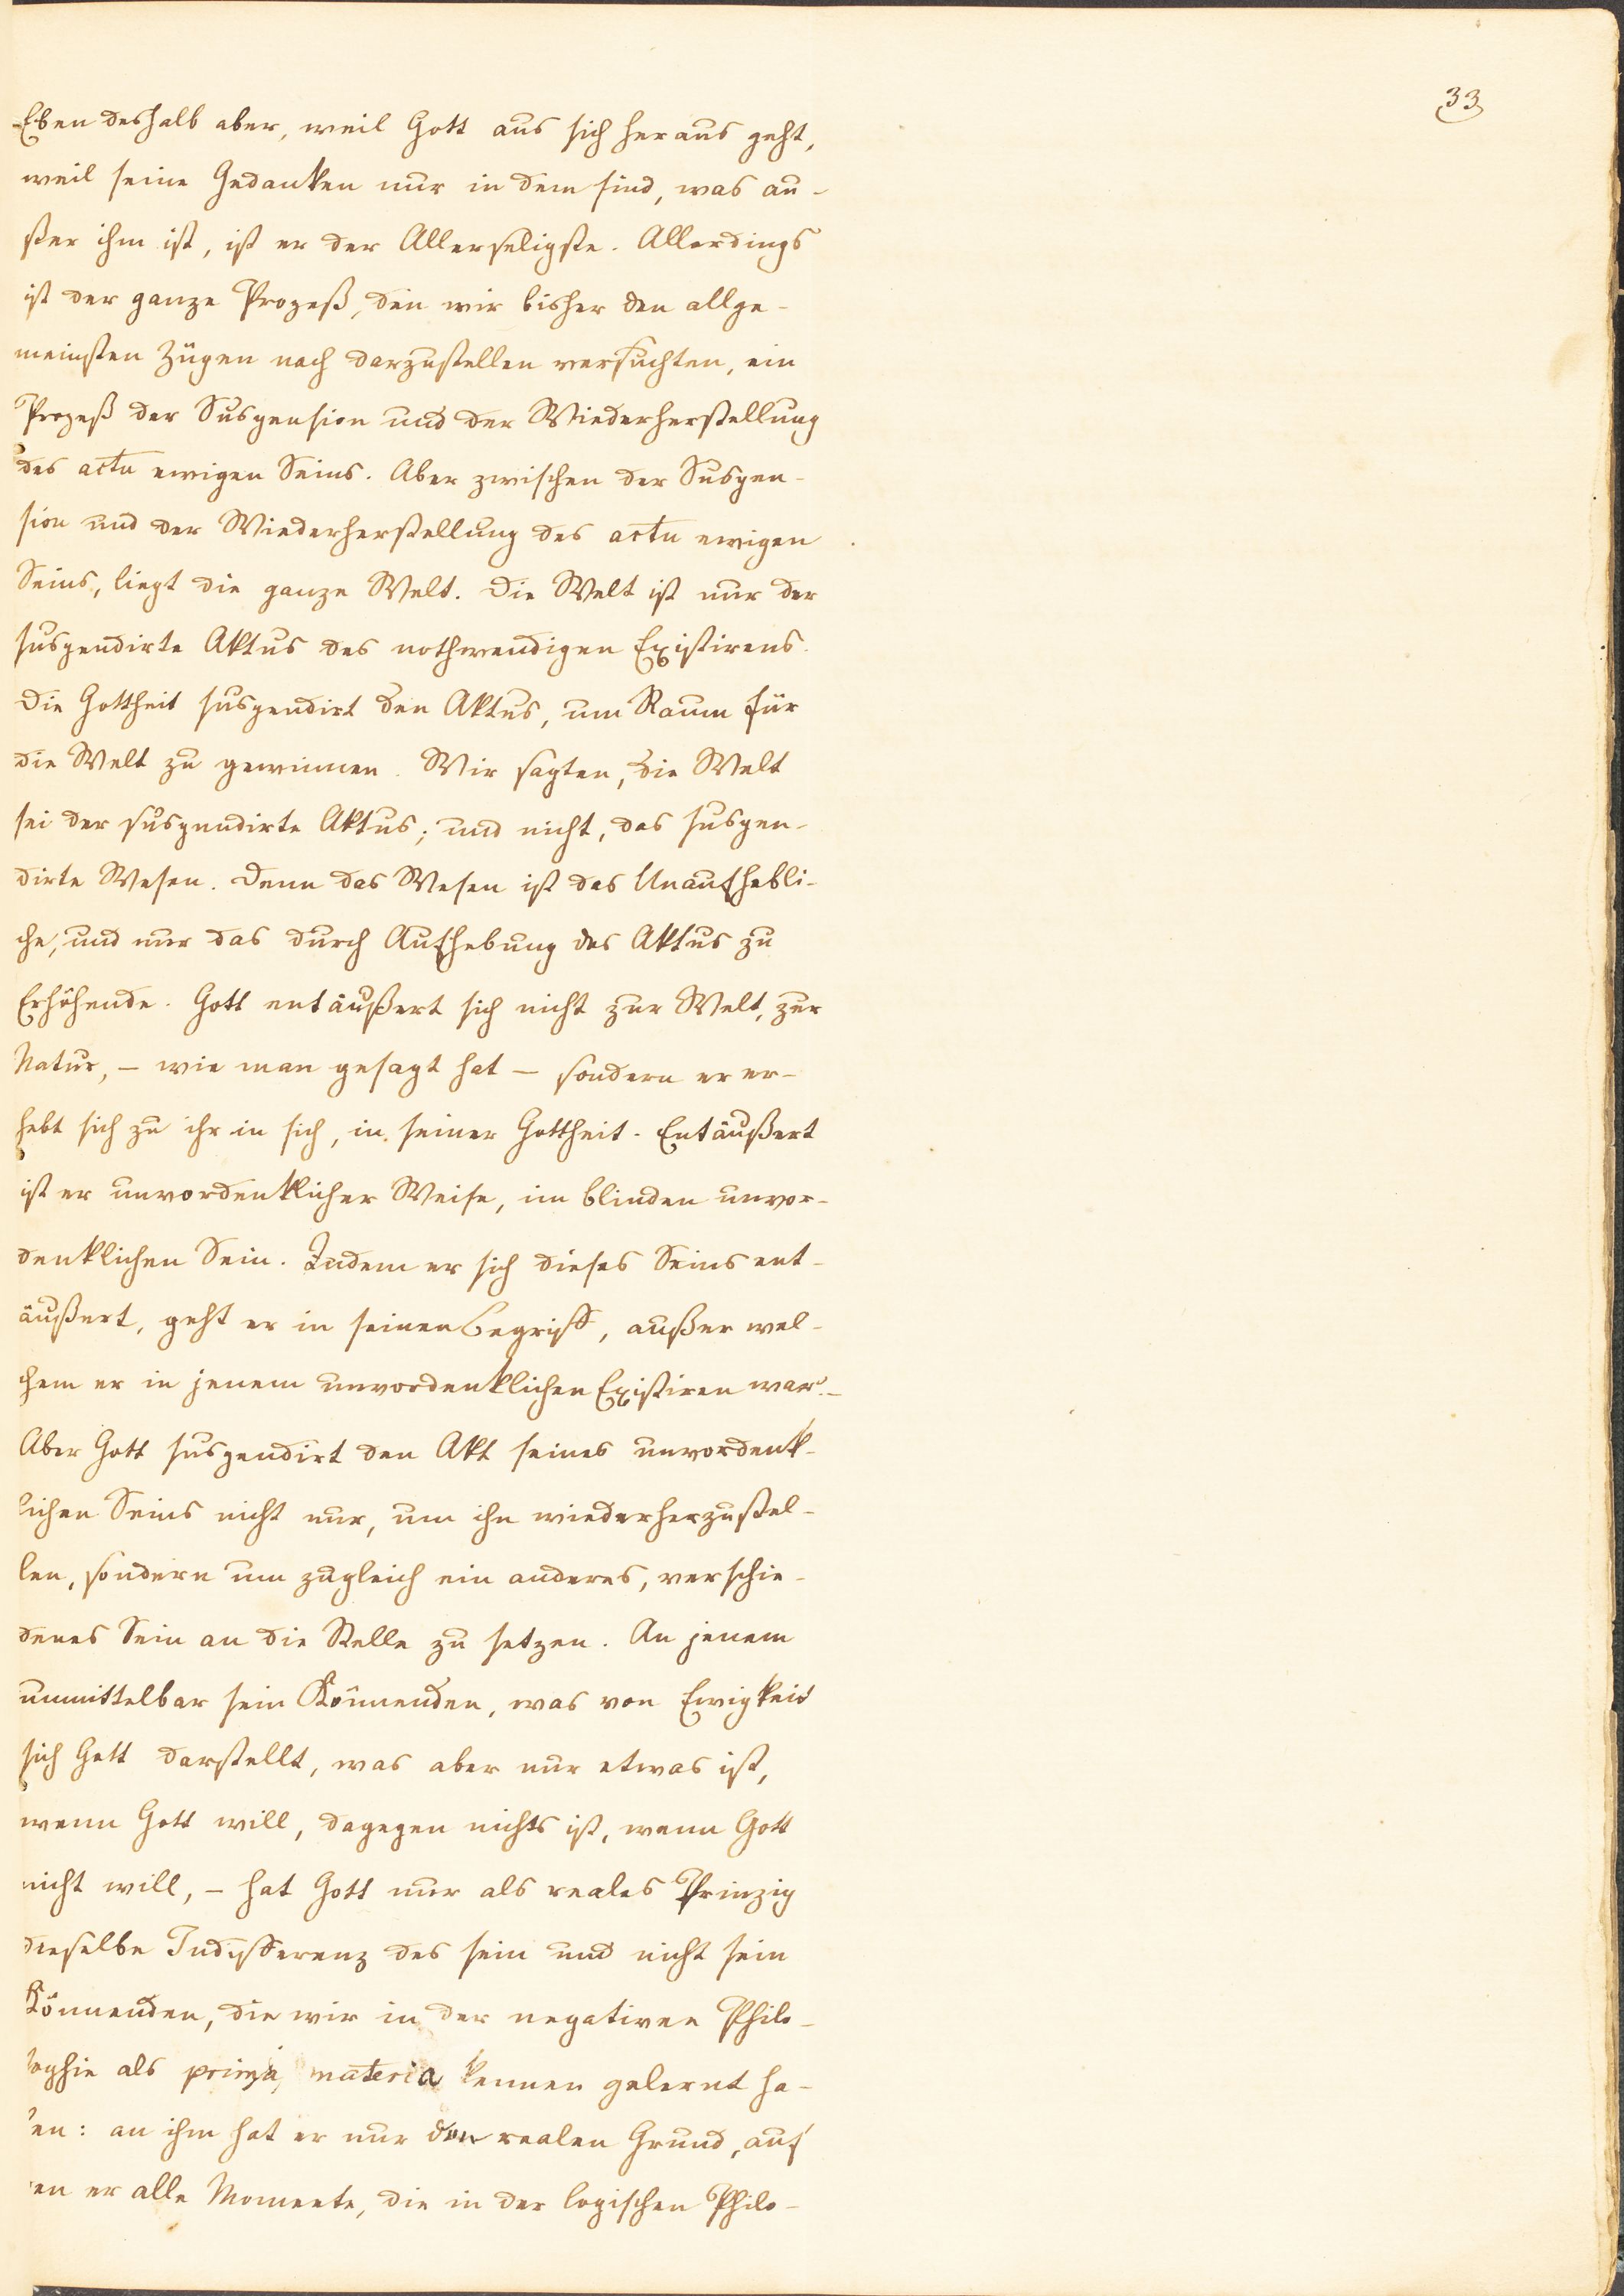 33
Eben deshalb aber, weil Gott aus sich heraus geht,
weil seine Gedanken nur in dem sind, was au-
ßer ihm ist, ist er der Allerseligste. Allerdings
ist der ganze Prozeß, den wir bisher den allge-
meinsten Zügen nach darzustellen versuchten, ein
Prozeß der Suspension und der Wiederherstellung
des actu ewigen Seins. Aber zwischen der Suspen-
sion und der Wiederherstellung des actu ewigen
Seins, liegt die ganze Welt. Die Welt ist nur der
suspendirte Aktus des nothwendigen Existirens.
Die Gottheit suspendirt den Aktus, um Raum für
die Welt zu gewinnen. Wir sagten, die Welt
sei der suspendirte Aktus; und nicht, das suspen-
dirte Wesen. Denn das Wesen ist das Unaufhebli-
che, und nur das durch Aufhebung des Aktus zu
Erhöhende. Gott entäußert sich nicht zur Welt, zur
Natur, – wie man gesagt hat – sondern er er-
hebt sich zu ihr in sich, in seiner Gottheit. Entäußert
ist er unvordenklicher Weise, im blinden unvor-
denklichen Sein. Indem er sich dieses Seins ent-
äußert, geht er in seinen Begriff, außer wel-
chem er in jenem unvordenklichen Existiren war. –
Aber Gott suspendirt den Akt seines unvordenk-
lichen Seins nicht nur, um ihn wiederherzustel-
len, sondern um zugleich ein anderes, verschie-
denes Sein an die Stelle zu setzen. An jenem
unmittelbar sein Könnenden, was von Ewigkeit
sich Gott darstellt, was aber nur etwas ist,
wenn Gott will, dagegen nichts ist, wenn Gott
nicht will, – hat Gott nur als reales Prinzip
dieselbe Indifferenz des sein und nicht sein
Könnenden, die wir in der negativen Philo-
sophie als prima materia kennen gelernt ha-
ben: an ihm hat er nur den realen Grund, auf
den er alle Momente, die in der logischen Philo-